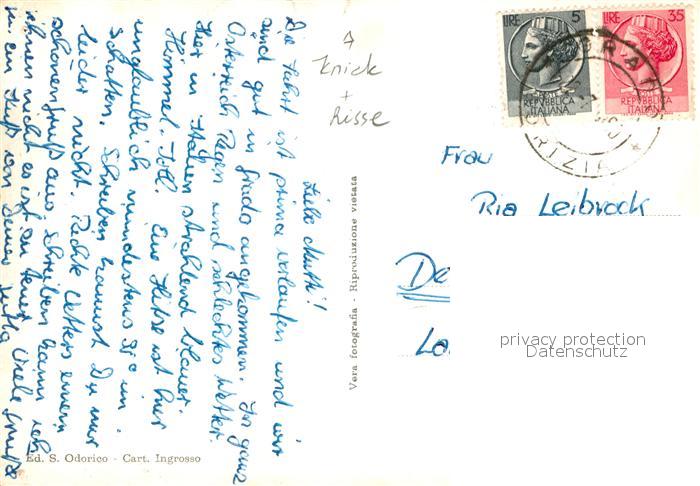 Liebe Mutti!
Die Fahrt ist prima verlaufen und wir
sind gut in Grado angekommen. In ganz
Österreich Regen und schlechtes Wetter.
Hier in Italien strahlend blauer
Himmel. Toll. Eine Hitze ist hier
unglaublich mindestens 35° im
Schatten. Schreiben brauchst Du mir
leider nicht. Richte Vetters einen
schönen Gruß aus. Schreiben kann ich
ihnen nicht es ist zu teuer. Viele Grüße
u. ein Kuß von Deiner Jutta
Ed. S. Odorico - Cart. Ingrosso
Vera fotografia - Riproduzione vietata
A
Knick
+
Risse
LIRE 5
REPVBBLICA
ITALIANA
LIRE 35
REPVBBLICA
ITALIANA
GRAD
Frau
Ria Leibrock
De
La
privacy protection
Datenschutz